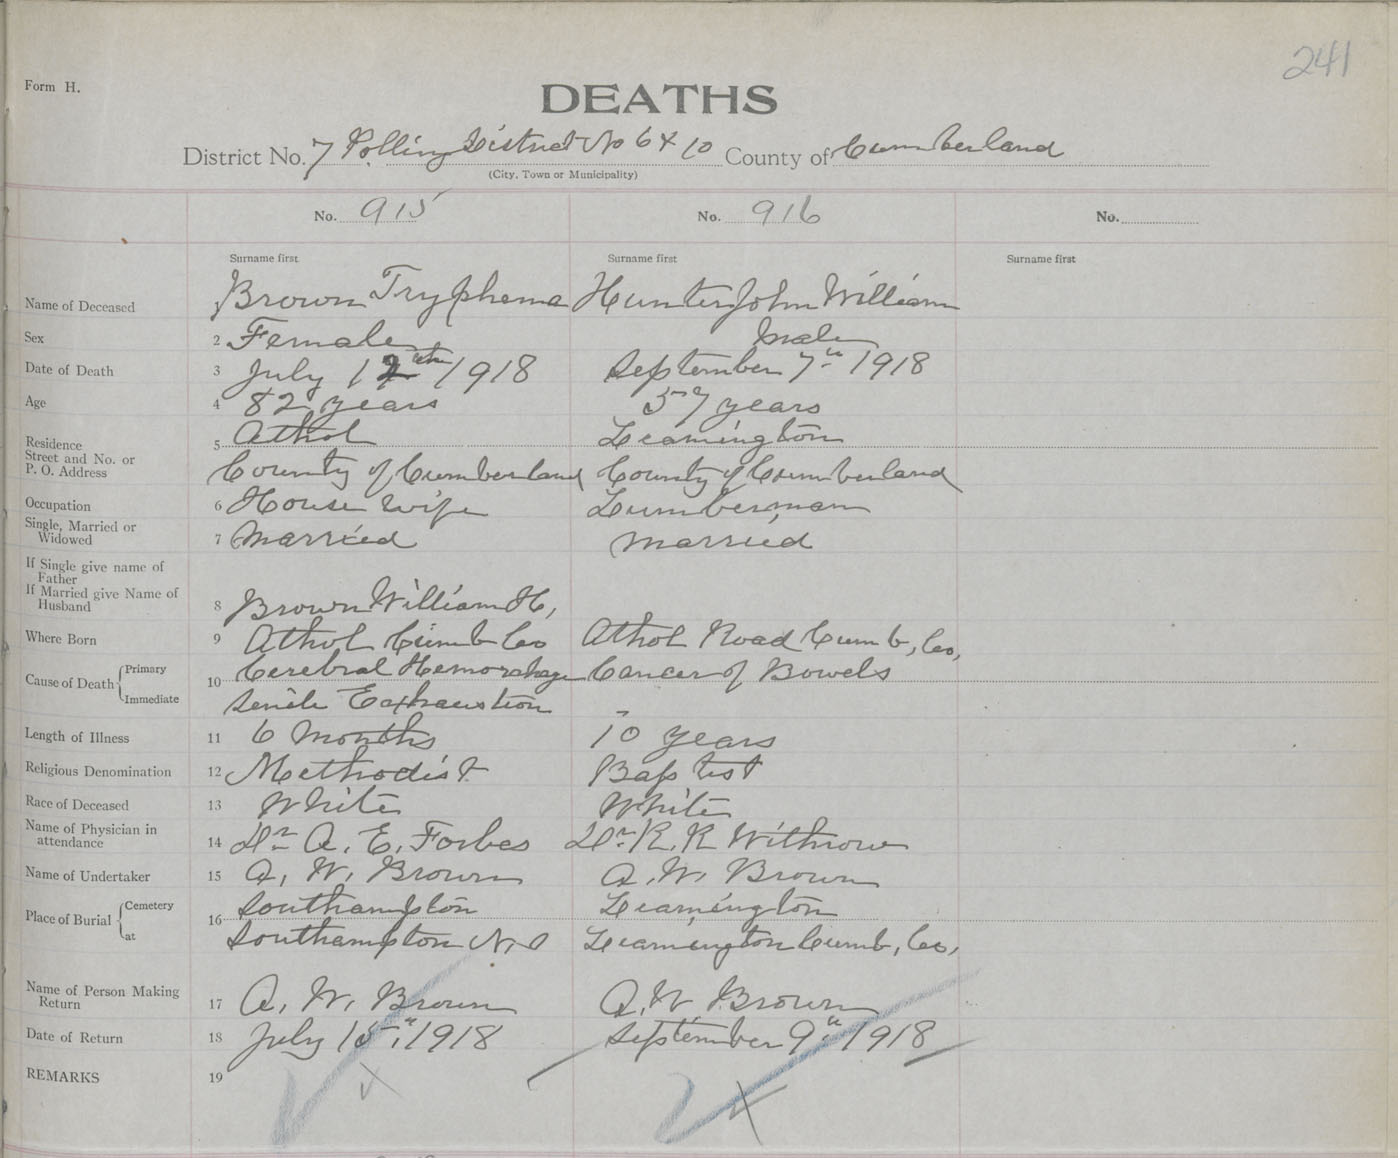 241
Form H.
DEATHS
District No. 7 Polling District No 6 & 10 County of Cumberland
(City, Town or Municipality)
No. 915 No. 916 No.
Surname first Surname first Surname first
Name of Deceased Brown Tryphena Hunter John William
Sex 2 Female Male
Date of Death 3 July 12th 1918 September 7" 1918
Age 4 82 years 57 years
Residence 5 Athol Leamington
Street and No. or
P. O. Address County of Cumberland County of Cumberland
Occupation 6 House wife Lumberman
Single, Married or
Widowed 7 Married Married
If Single give name of
Father
If Married give Name of
Husband 8 Brown William H,
Where Born 9 Athol Cumb Co Athol Road Cumb, Co,
Cause of Death Primary 10 Cerebral Hemorahage Cancer of Bowels
Immediate Senile Exhaustion
Length of Illness 11 6 Months 10 years
Religious Denomination 12 Methodist Baptist
Race of Deceased 13 White White
Name of Physician in
attendance 14 Dr A. E. Forbes Dr R. K Withrow
Name of Undertaker 15 A, W, Brown A. W. Brown
Place of Burial Cemetery 16 Southampton Leamington
at Southampton N.S Leamington Cumb, Co,
Name of Person Making
Return 17 A, W, Brown A. W. Brown
Date of Return 18 July 15" 1918 September 9" 1918
REMARKS 19